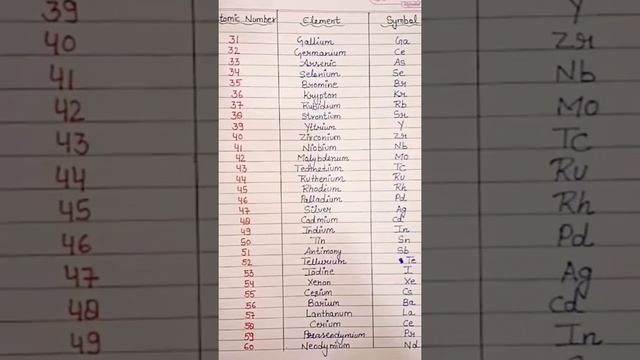 39
40
41
42
43
44
45
46
47
48
49
tomic Number Element Symbol
31 Gallium Ga
32 Germanium Ge
33 Arsenic As
34 Selenium Se
35 Bromine Br
36 Krypton Kr
37 Rubidium Rb
38 Strontium Sr
39 Yttrium Y
40 Zirconium Zr
41 Niobium Nb
42 Molybdenum Mo
43 Technetium Tc
44 Ruthenium Ru
45 Rhodium Rh
46 Palladium Pd
47 Silver Ag
48 Cadmium Cd
49 Indium In
50 Tin Sn
51 Antimony Sb
52 Tellurium Te
53 Iodine I
54 Xenon Xe
55 Cesium Cs
56 Barium Ba
57 Lanthanum La
58 Cerium Ce
59 Pr
60 Neodymium Nd
Y
Zr
Nb
Mo
Tc
Ru
Rh
Pd
Ag
Cd
In